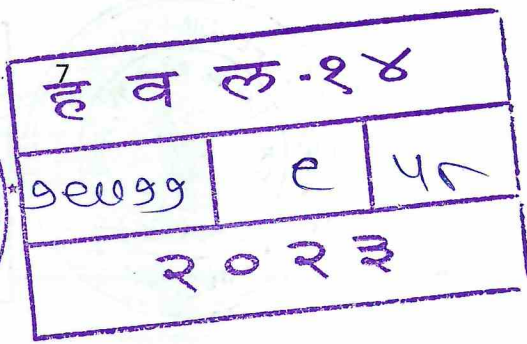 7
ह व ल -१४
१९७११ ९ ५८
२०२३